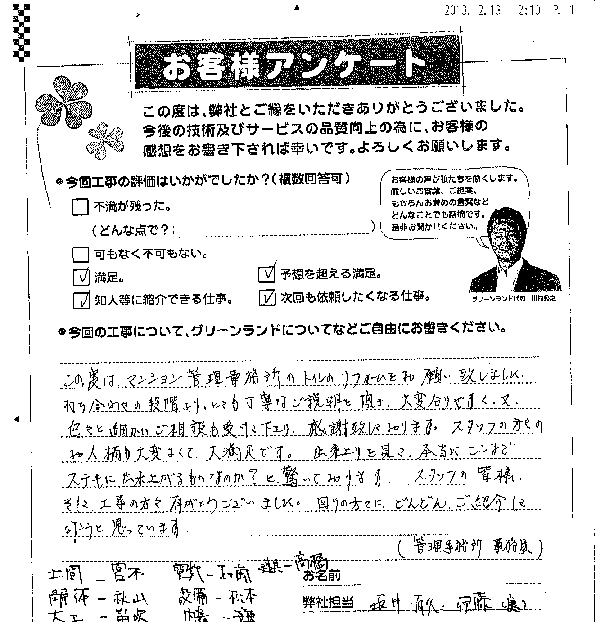 2:10 P. 1
お客様アンケート
この度は、弊社とご縁をいただきありがとうございました。
今後の技術及びサービスの品質向上の為に、お客様の
感想をお書き下されば幸いです。よろしくお願いします。
●今回工事の評価はいかがでしたか？(複数回答可)
不満が残った。
(どんな点で？: )
可もなく不可もない。
満足。
予想を超える満足。
知人等に紹介できる仕事。
次回も依頼したくなる仕事。
お客様の声が私たちを強くします。
厳しいご意見、ご提案、
もちろんお褒めの言葉など
どんなことでも結構です。
是非お聞かせください。
グリーンランド代表
●今回の工事について、グリーンランドについてなどご自由にお書きください。
この度は マンション管理事務所のトイレのリフォームをお願い致しました。
打ち合わせの段階より、とても丁寧なご説明を頂き、大変分りやすく、又、
色々と細かいご相談も受けて下さり、感謝致しております。スタッフの方々の
お人柄も大変よくて、大満足です。出来上りを見て、本当にここまで
ステキに出来上がるものなのか？と驚いております。スタッフの皆様、
そして工事の方々ありがとうございました。周りの方々に どんどんご紹介し
ようと思っています。
(管理事務所 事務員)
お名前
解体 - 秋山 設備 - 松本
弊社担当
大工